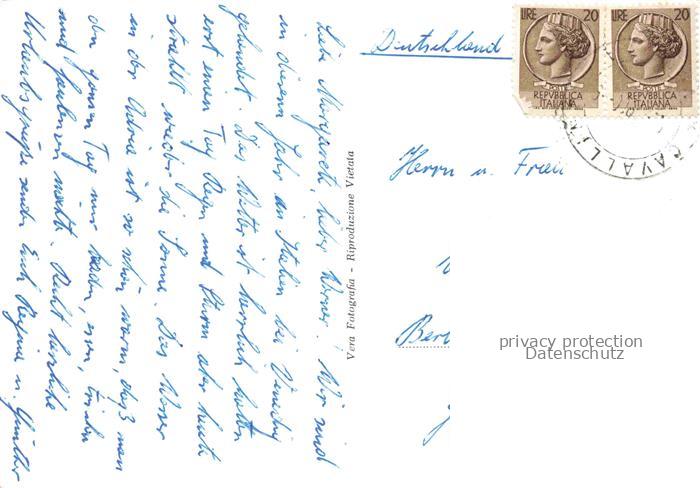 Liebe Margarete, lieber Werner! Wir sind
in diesem Jahr in Italien bei Venedig
gelandet. Das Wetter ist herrlich, hatten
erst einen Tag Regen und Sturm aber heute
strahlt wieder die Sonne. Das Wasser
in der Adria ist so schön warm, daß man
den ganzen Tag nur baden, essen, trinken
und faulenzen möchte. Recht herzliche
Urlaubsgrüße senden Euch Regina u. Günther
Vera Fotografia - Riproduzione Vietata
Deutschland
LIRE 20
POSTE
REPVBBLICA
ITALIANA
LIRE 20
POSTE
REPVBBLICA
ITALIANA
CAVALLI
Herrn u. Frau
privacy protection
Datenschutz